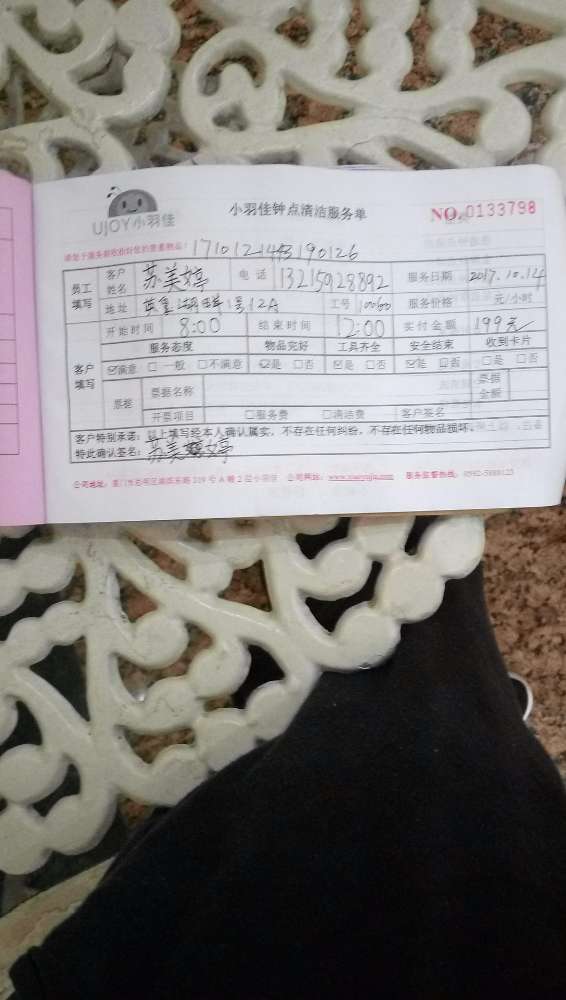 UJOY小羽佳
小羽佳钟点清洁服务单
NO.0133798
员工填写 客户姓名 苏美婷 电话 13215928892 服务日期 2017.10.14
地址 号12A 工号 服务价格 元/小时
开始时间 8:00 结束时间 12:00 实付金额 199元
客户填写 服务态度 物品完好 工具齐全 安全结束 收到卡片
☑满意 □一般 □不满意 ☑是 □否 ☑是 □否 ☑是 □否 □是 □否
票据 票据名称 票据金额
开票项目 □服务费 □清洁费 客户签名
客户特别承诺：以上填写经本人确认属实，不存在任何纠纷，不存在任何物品损坏。
特此确认签名： 苏美婷
公司地址： 2楼小羽佳 公司网址：www.xiaoyujia.com 服务监督热线：